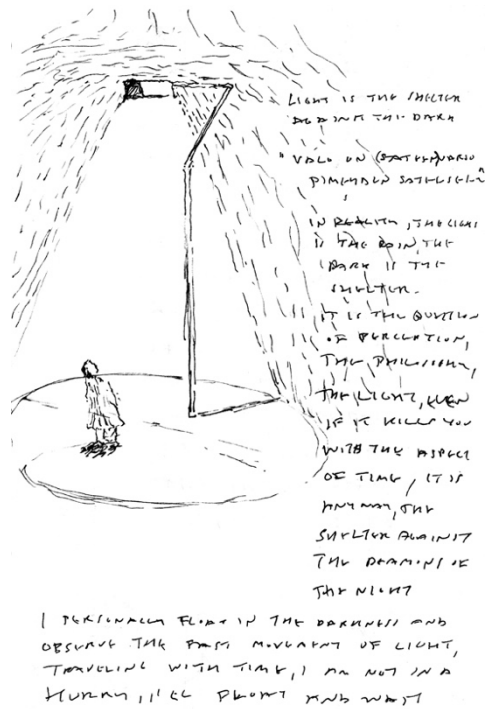 LIGHT IS THE SHELTER
AGAINST THE DARK
"VALO ON (SATEEN)VARJO
PIMEYDEN SATEESEEN"
IN REALITY, THE LIGHT
IS THE RAIN, THE
DARK IS THE
SHELTER.
IT IS THE QUESTION
OF PERCEPTION,
THE PHILOSOPHY,
THE LIGHT, EVEN
IF IT KILLS YOU
WITH THE ASPECT
OF TIME, IT IS
ANYWAY, THE
SHELTER AGAINST
THE DEAMONS OF
THE NIGHT
I PERSONALLY FLOAT IN THE DARKNESS AND
OBSERVE THE FAST MOVEMENT OF LIGHT,
TRAVELING WITH TIME, I AM NOT IN A
HURRY, I'LL FLOAT AND WAIT